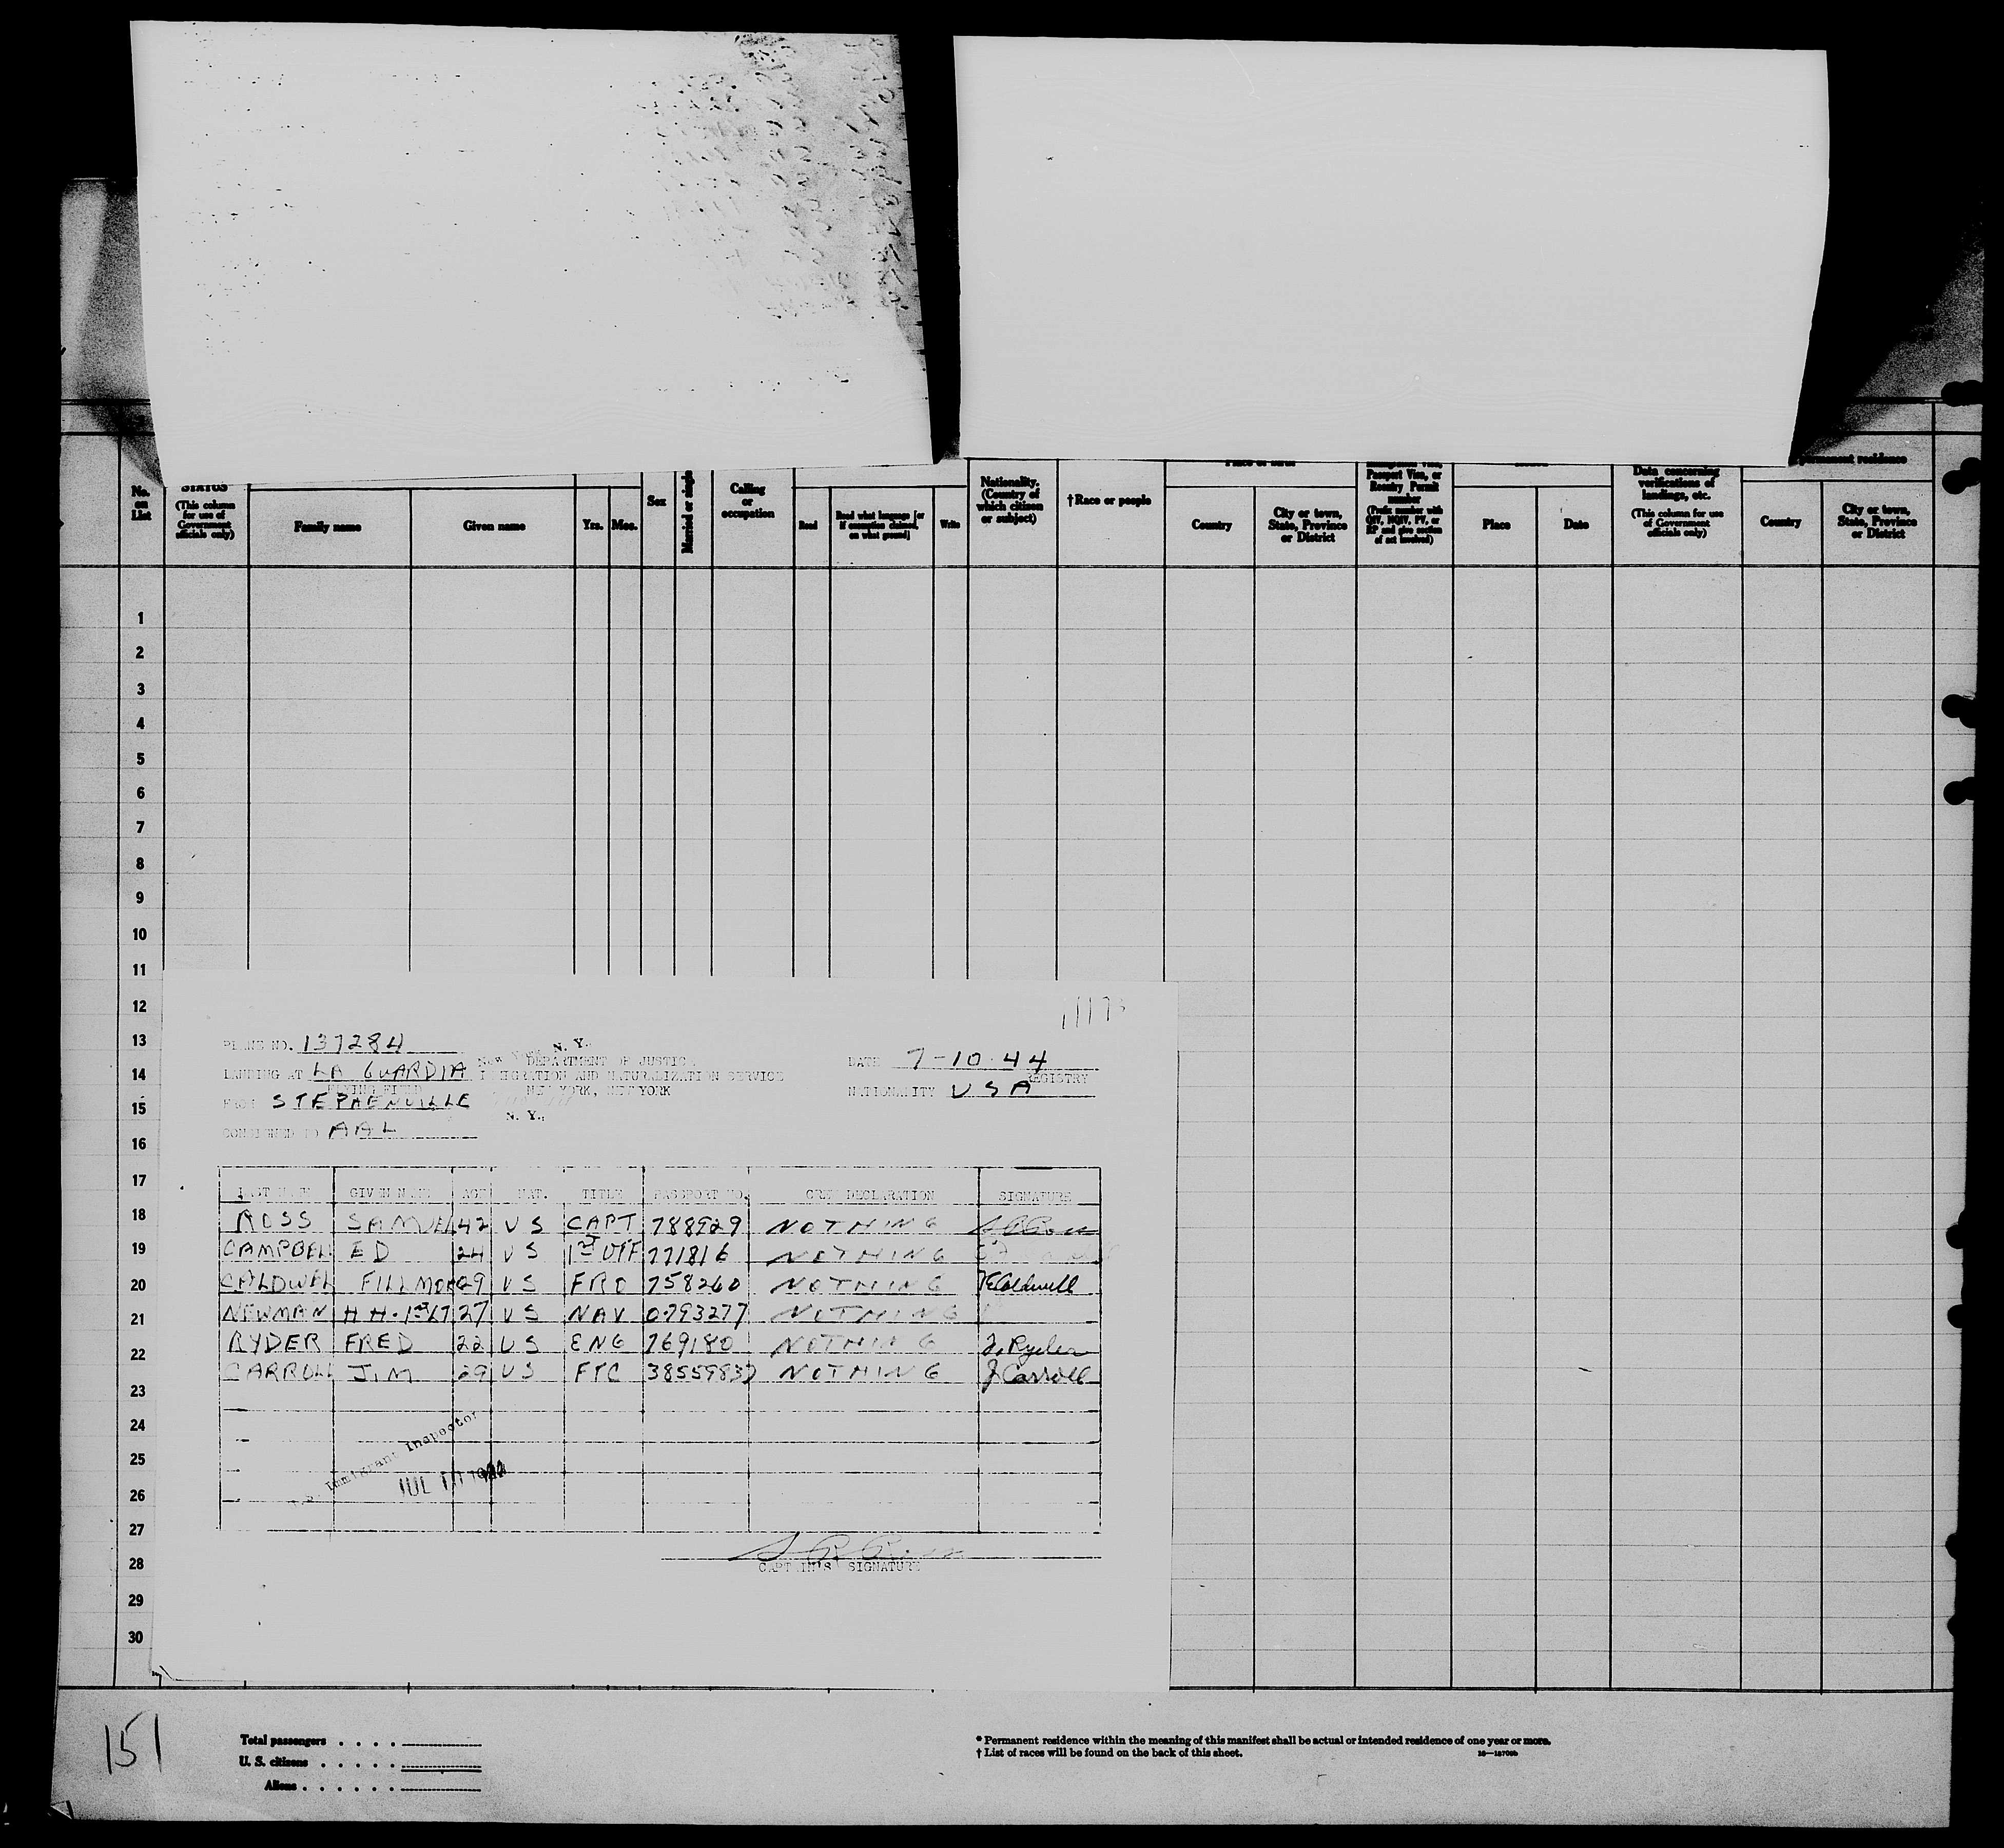 No. on List
STATUS (This column for use of Government officials only)
Family name
Given name
Yrs.
Mos.
Sex
Married or single
Calling or occupation
Read
Read what language [or if exemption claimed, on what ground]
Write
Nationality. (Country of which citizen or subject)
†Race or people
Place of birth
Country
City or town, State, Province or District
Passport Visa, or Reentry Permit number (Prefix number with QIV, NQIV, PV, or RP and give section of act involved)
Place
Date
Data concerning verifications of landings, etc. (This column for use of Government officials only)
permanent residence
Country
City or town, State, Province or District
1
2
3
4
5
6
7
8
9
10
11
12
13
14
15
16
17
18
19
20
21
22
23
24
25
26
27
28
29
30
PLANE NO. 137284
N. Y.
DEPARTMENT OF JUSTICE
DATE 7-10-44
LANDING AT LA GUARDIA
IMMIGRATION AND NATURALIZATION SERVICE
REGISTRY
FLYING FIELD
NEW YORK, NEW YORK
NATIONALITY USA
FROM STEPHENVILLE
N. Y.,
CONSIGNED TO AAL
LAST NAME GIVEN NAME AGE NAT. TITLE PASSPORT NO. CREW DECLARATION SIGNATURE
ROSS SAMUEL 42 US CAPT 788929 NOTHING S R Ross
CAMPBEL ED 24 US 1ST OFF 771816 NOTHING
CALDWEL FILLMORE 29 US FRO 758260 NOTHING FCaldwell
NEWMAN H H. 1ST LT 27 US NAV 0793277 NOTHING
RYDER FRED 22 US ENG 769180 NOTHING F. Ryder
CARROLL JIM 29 US FTC 38559837 NOTHING J Carroll
U.S. Immigrant Inspector
JUL 10 1944
S R Ross
CAPTAIN'S SIGNATURE
151
Total passengers
U. S. citizens
Aliens
* Permanent residence within the meaning of this manifest shall be actual or intended residence of one year or more.
† List of races will be found on the back of this sheet.